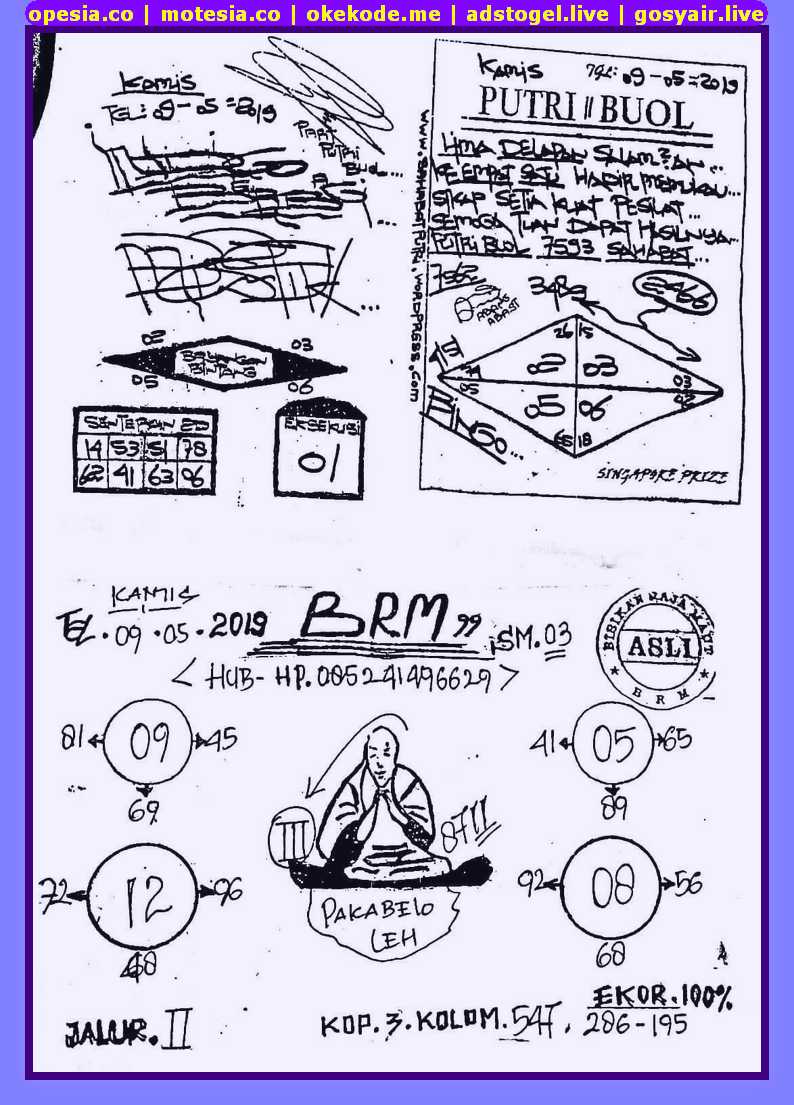 opesia.co | motesia.co | okekode.me | adstogel.live | gosyair.live
Kamis
TGL: 09-05=2019
PUTRI
BUOL...
02
03
BAYANGAN
BINTANG
05
06
SENTERAN 2D
14 53 51 78
62 41 63 96
EKSEKUSI
01
Kamis TGL: 09-05=2019
PUTRI // BUOL
WWW.SAHABATPUTRI.WORDPRESS.COM
LIMA DELAPAN
KE EMPAT SATU HADIR
SIKAP SETIA KUAT PESILAT...
SEMOGA TUAN DAPAT HASILNYA...
PUTRI BUOL 7593 SAHABAT...
7562
3489
2466
26 15
02 03
03
05
02
05 06
65 18
SINGAPORE PRIZE
KAMIS
TGL. 09.05.2019
BRM ,,
SM.03
< HUB- HP. 085241496629 >
BISIKAN RAJA MAUT
ASLI
BRM
81 09 45
69
41 05 65
89
III
8711
72 12 96
48
92 08 56
68
PAKABELO
LEH
JALUR. II
EKOR. 100%
KOP. 3. KOLOM. 547. 286-195